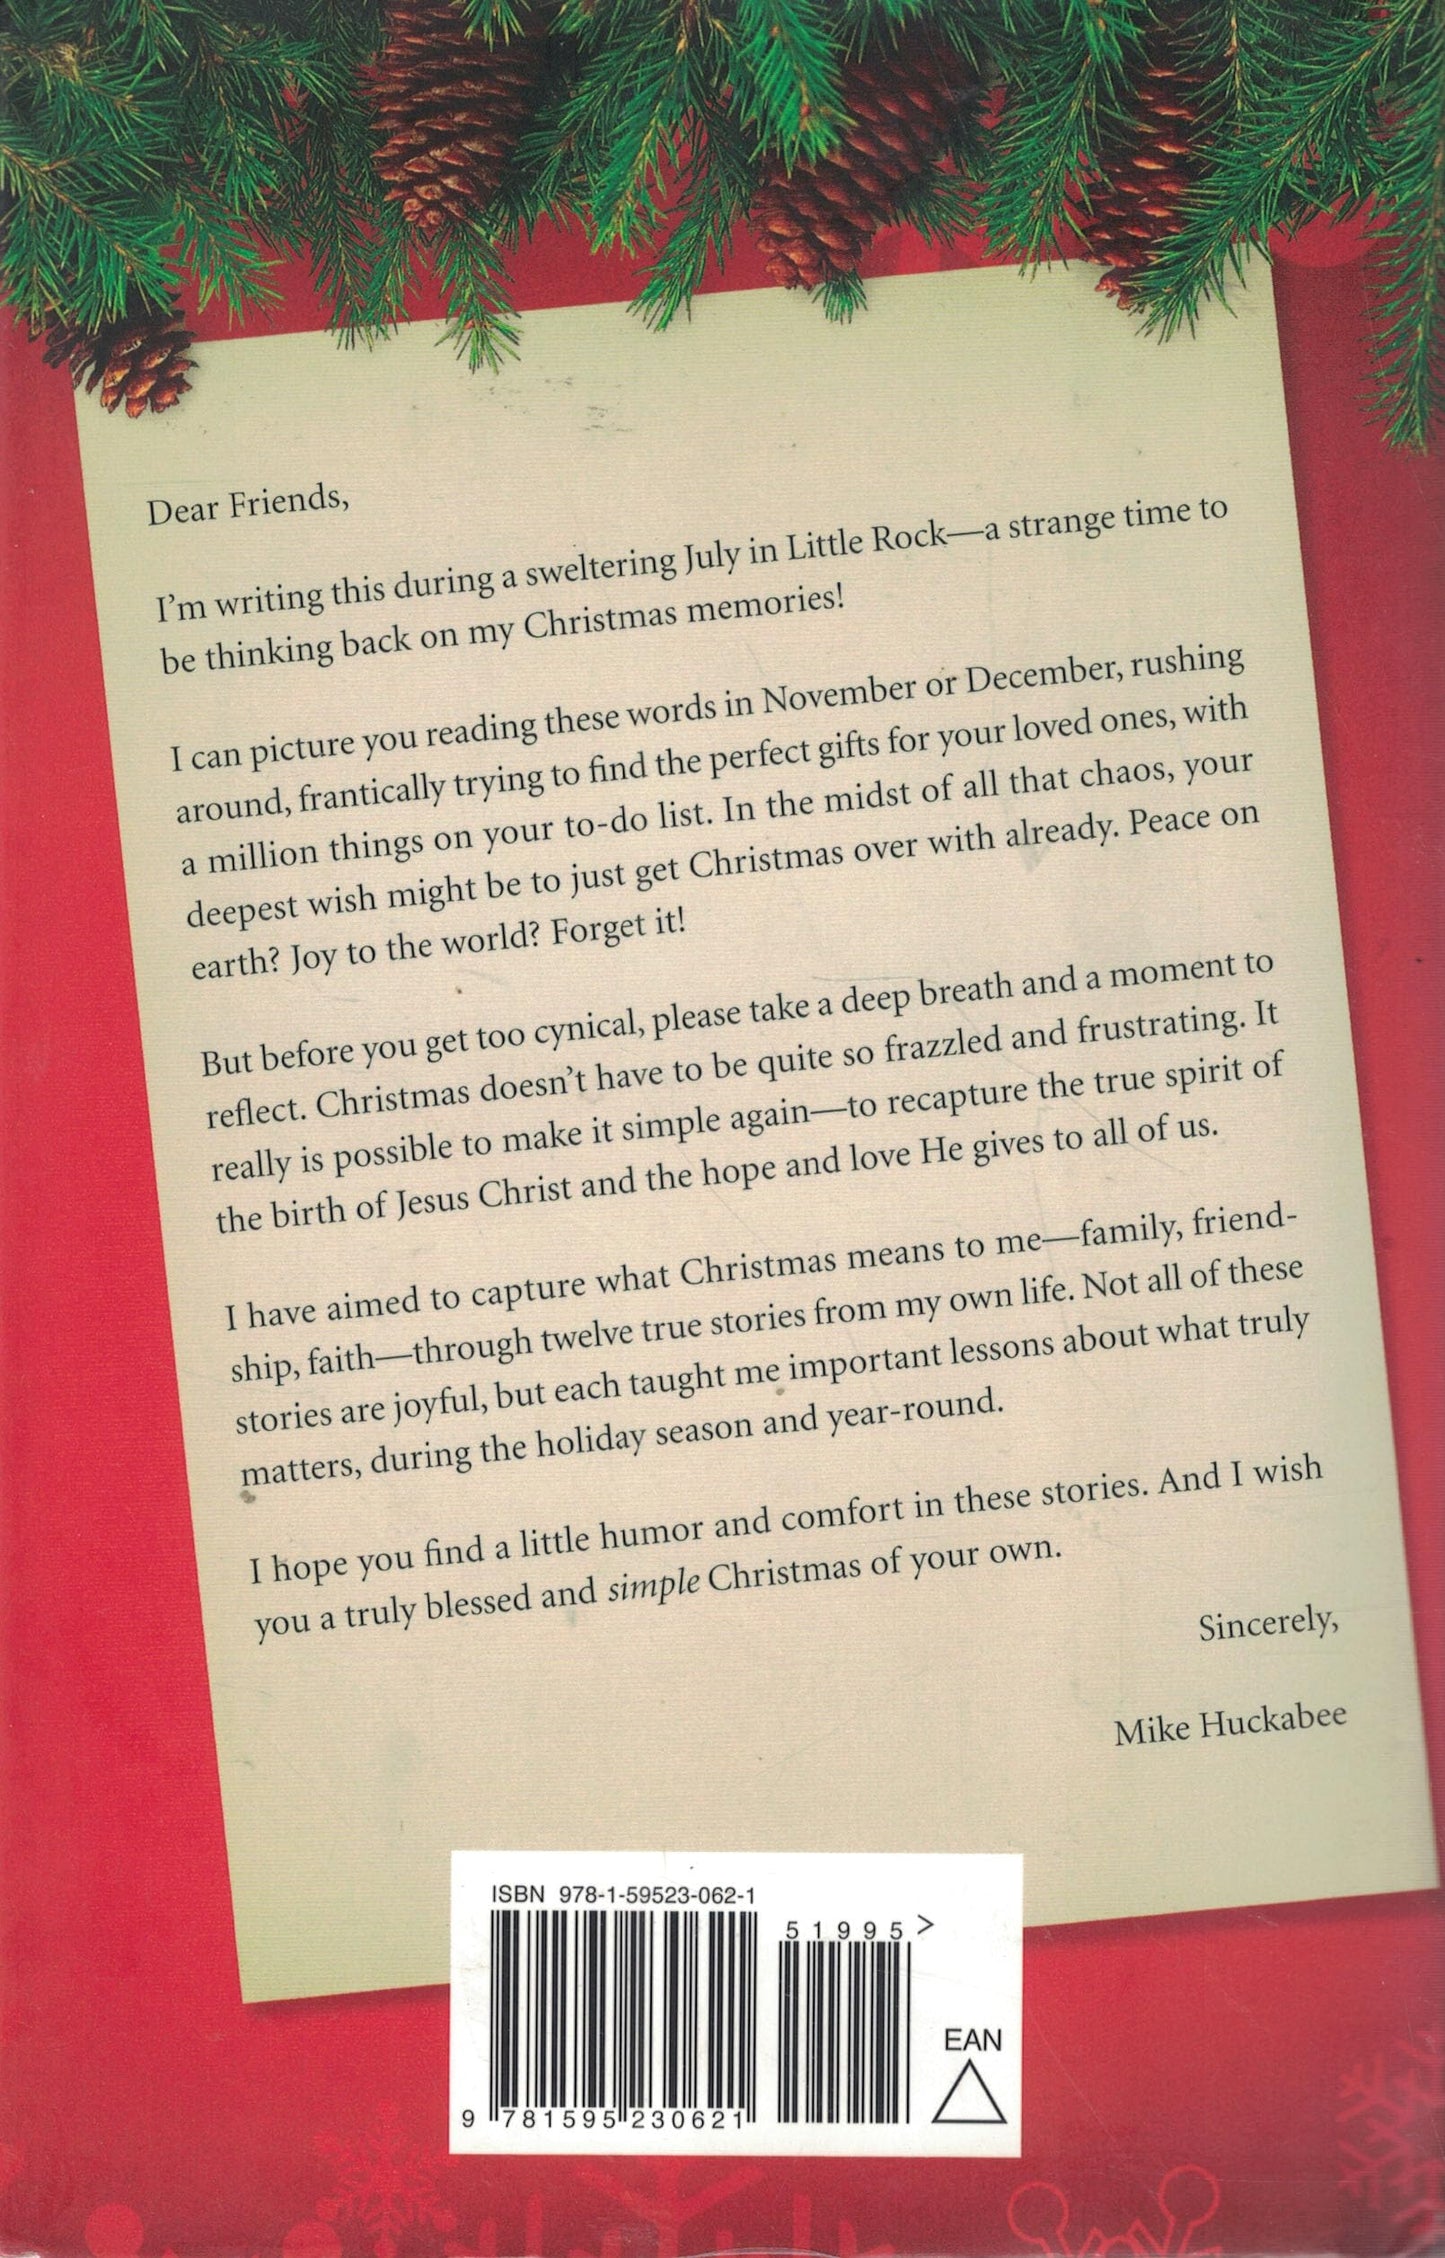 Dear Friends,
I'm writing this during a sweltering July in Little Rock—a strange time to
be thinking back on my Christmas memories!
I can picture you reading these words in November or December, rushing
around, frantically trying to find the perfect gifts for your loved ones, with
a million things on your to-do list. In the midst of all that chaos, your
deepest wish might be to just get Christmas over with already. Peace on
earth? Joy to the world? Forget it!
But before you get too cynical, please take a deep breath and a moment to
reflect. Christmas doesn't have to be quite so frazzled and frustrating. It
really is possible to make it simple again—to recapture the true spirit of
the birth of Jesus Christ and the hope and love He gives to all of us.
I have aimed to capture what Christmas means to me—family, friend-
ship, faith—through twelve true stories from my own life. Not all of these
stories are joyful, but each taught me important lessons about what truly
matters, during the holiday season and year-round.
I hope you find a little humor and comfort in these stories. And I wish
you a truly blessed and simple Christmas of your own.
Sincerely,
Mike Huckabee
ISBN 978-1-59523-062-1
51995>
EAN
9 781595 230621